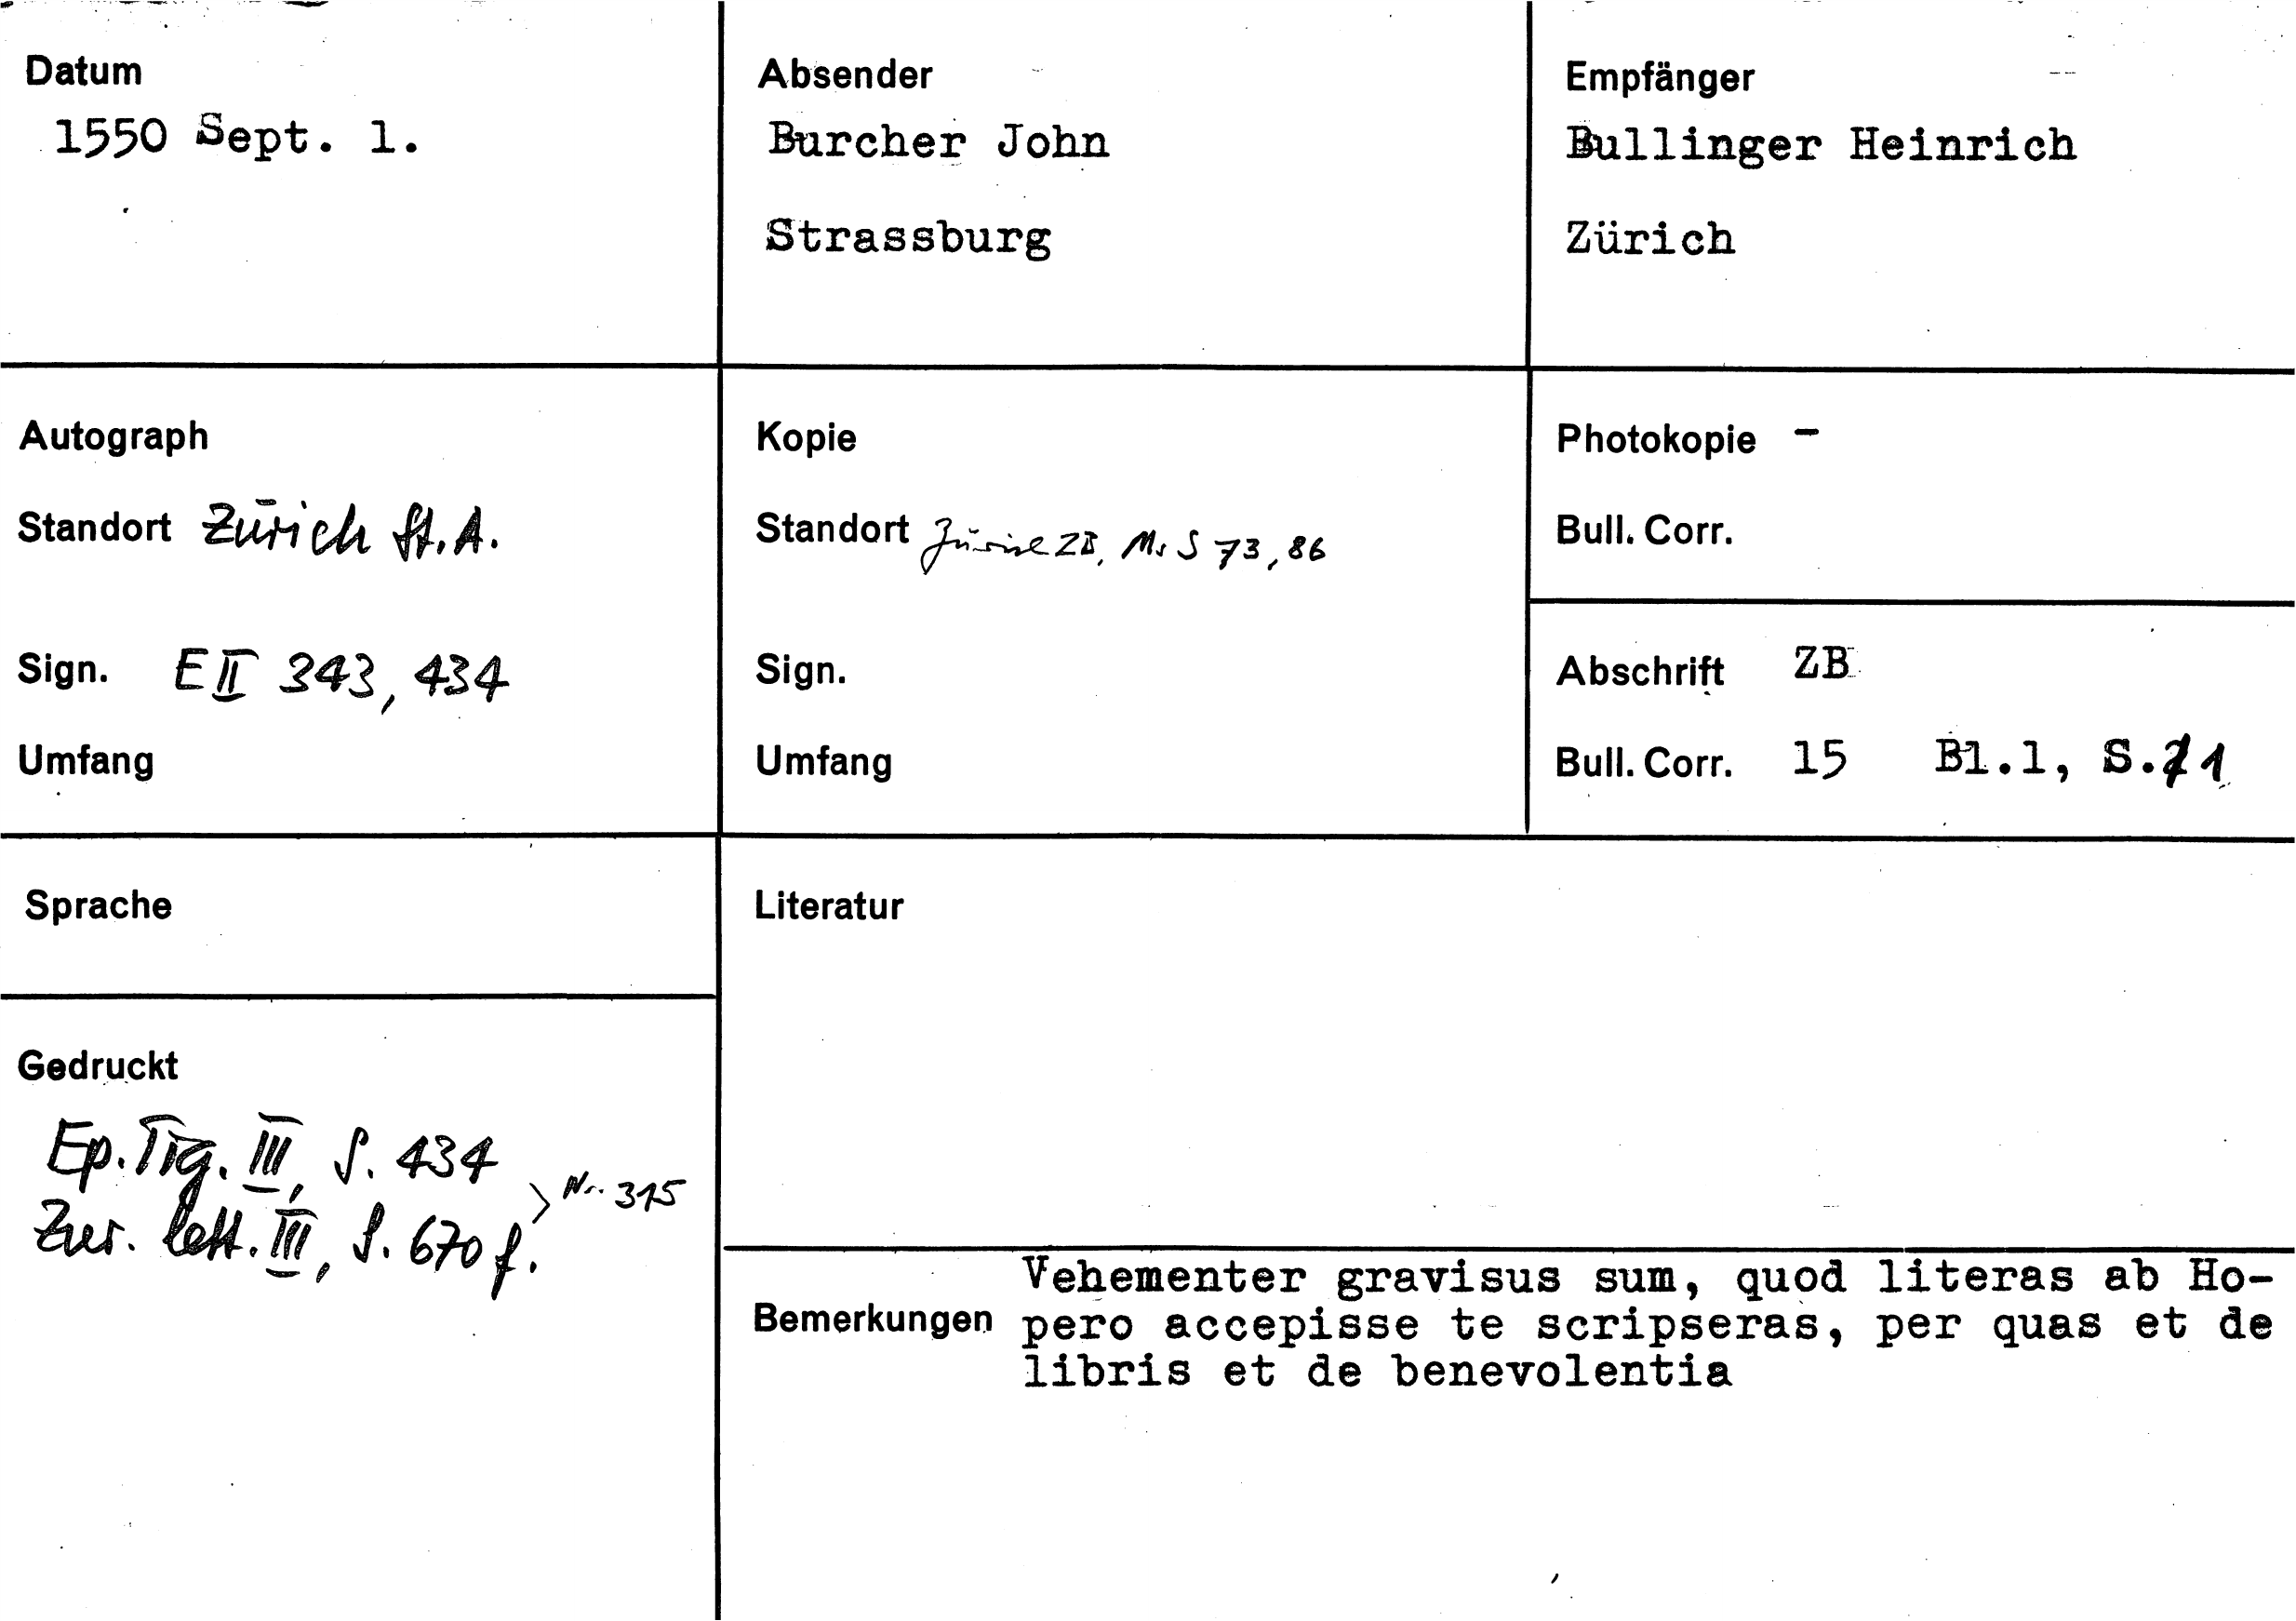 Datum
1550 Sept. 1.
Absender
Burcher John
Strassburg
Empfänger
Bullinger Heinrich
Zürich
Autograph
Standort Zürich St.A.
Sign. E II 343, 434
Umfang
Kopie
Standort Zürich ZB, Ms S 73, 86
Sign.
Umfang
Photokopie -
Bull. Corr.
Abschrift ZB
Bull. Corr. 15 Bl.1, S. 1
Sprache
Gedruckt
Ep. Tig. III, S. 434
Zur. lett. III, S. 670 f.
> Nr. 315
Literatur
Bemerkungen
Vehementer gravisus sum, quod literas ab Ho-
pero accepisse te scripseras, per quas et de
libris et de benevolentia